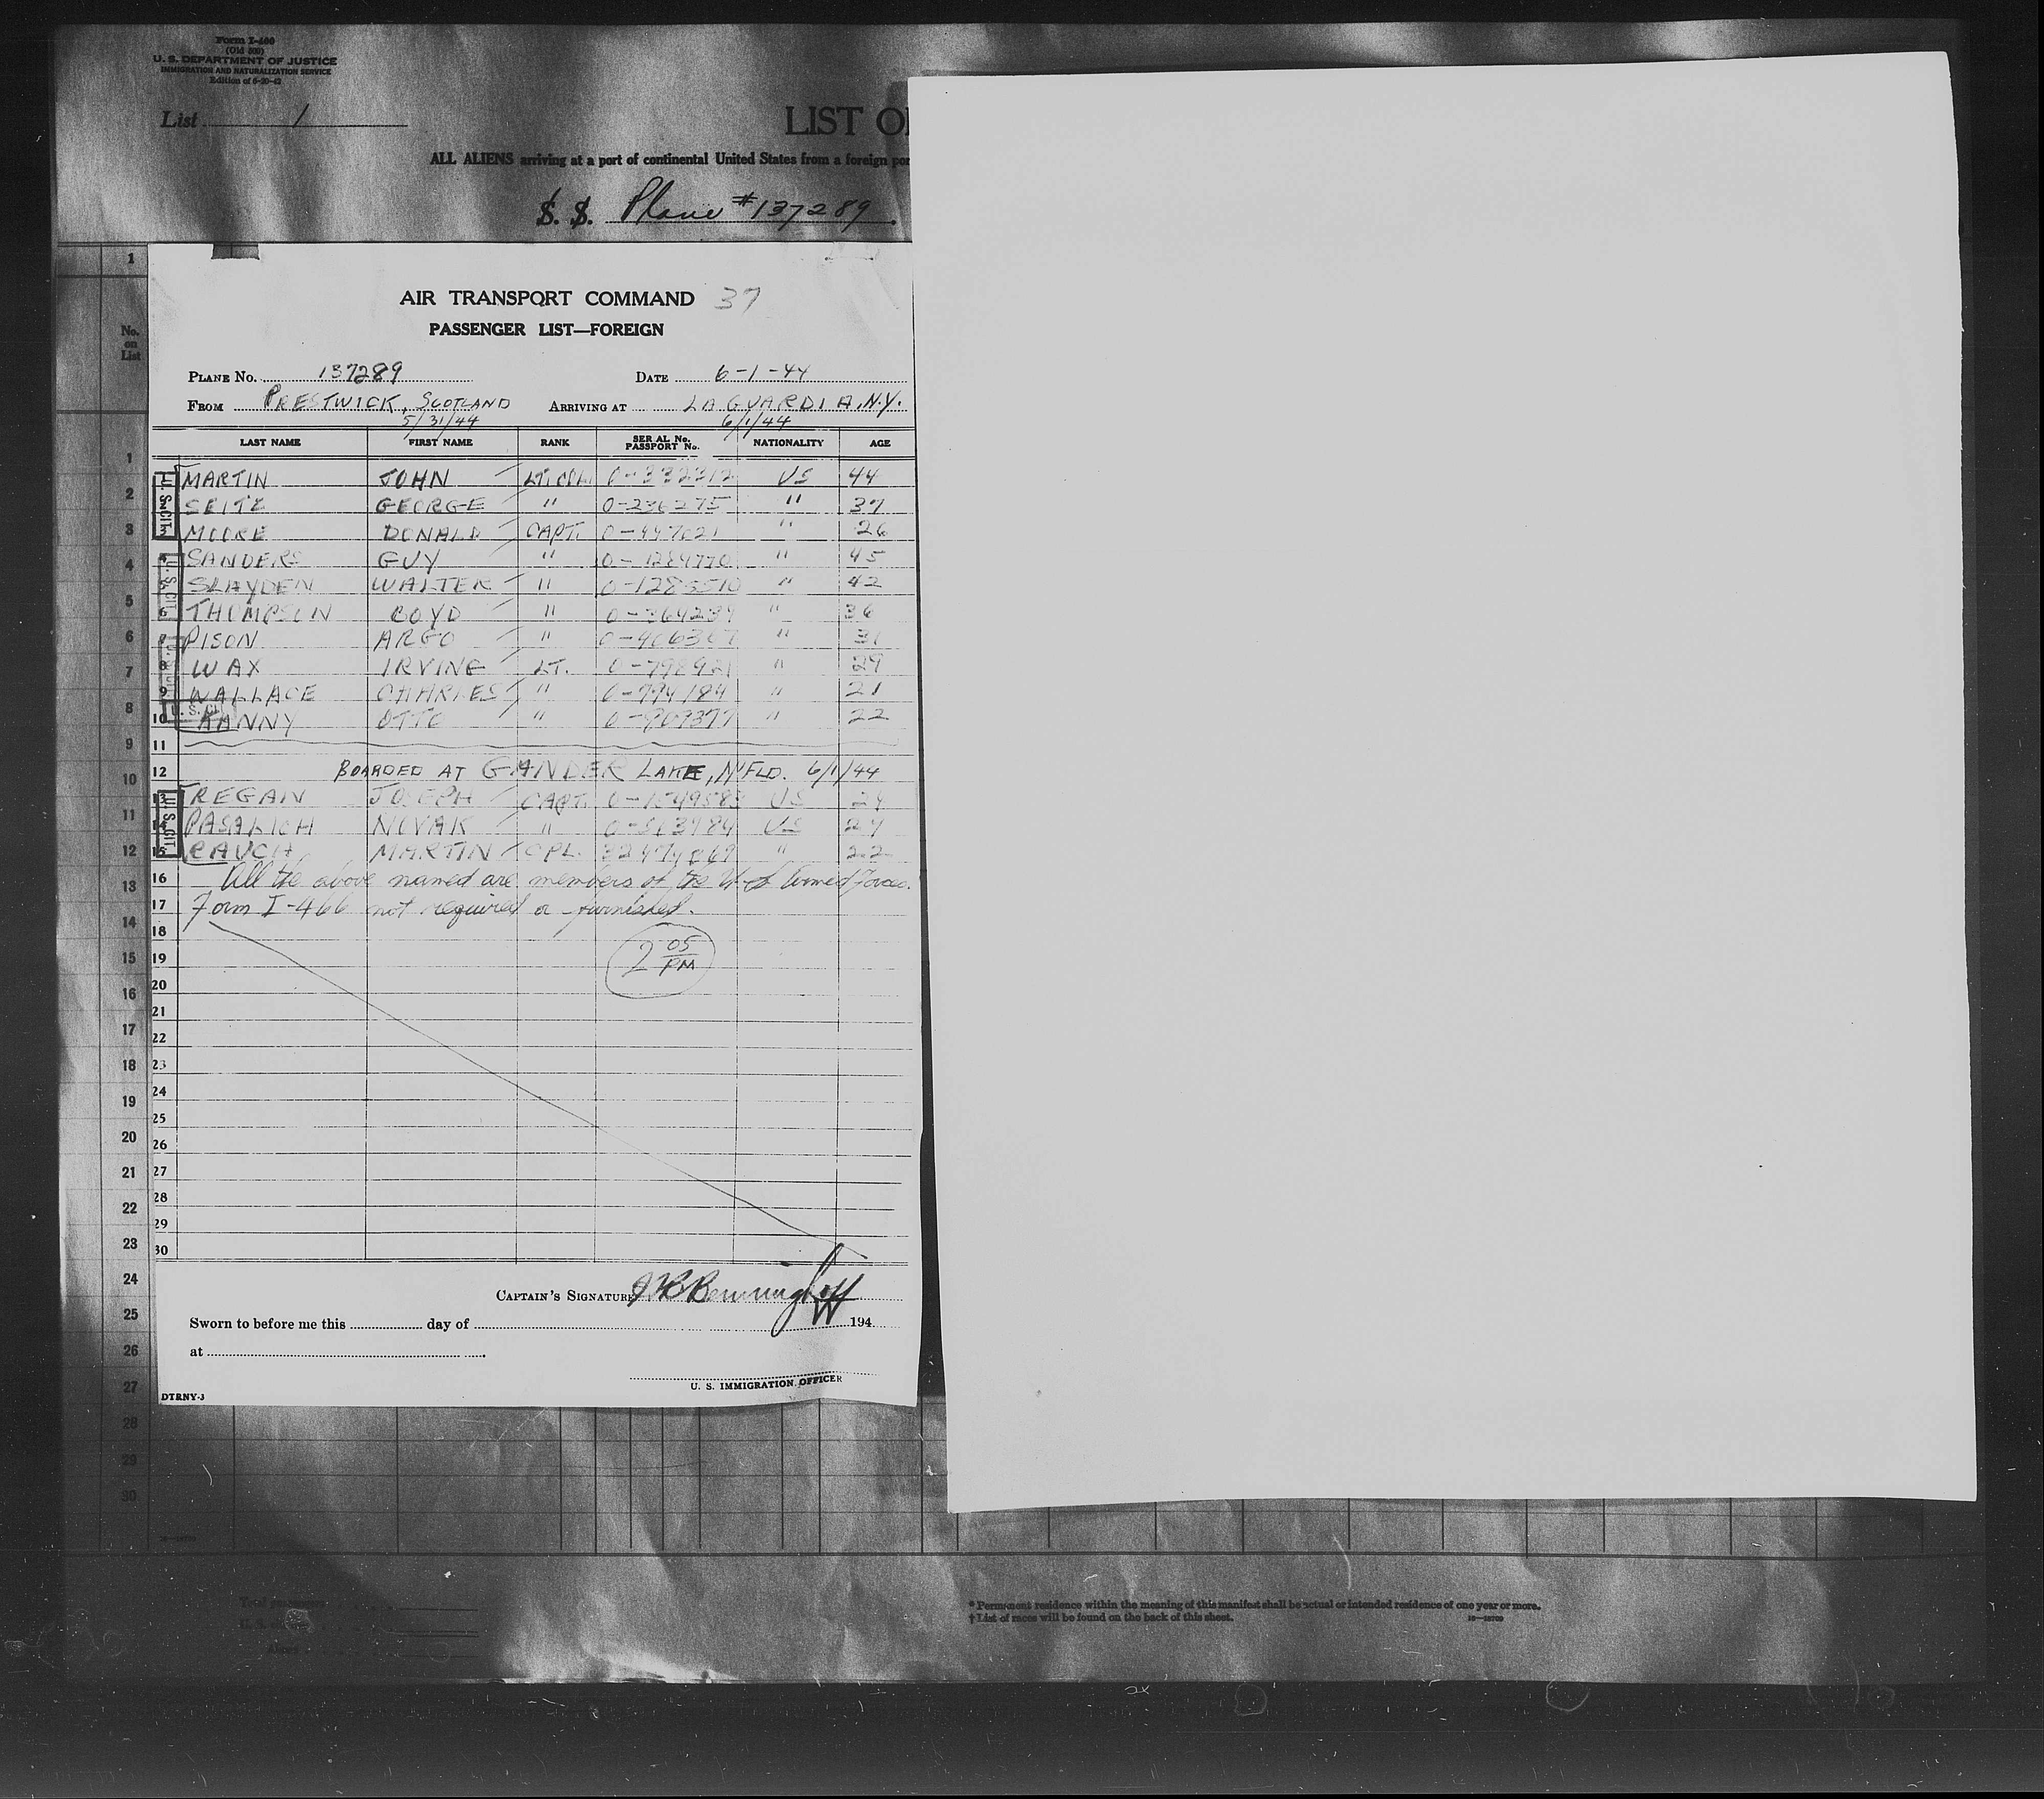 Form I-466
(Old 500)
U. S. DEPARTMENT OF JUSTICE
IMMIGRATION AND NATURALIZATION SERVICE
Edition of 6-20-42
List 1
LIST O
ALL ALIENS arriving at a port of continental United States from a foreign por
S. S. Plane #137289
AIR TRANSPORT COMMAND 37
PASSENGER LIST—FOREIGN
PLANE NO. 137289 DATE 6-1-44
FROM PRESTWICK, SCOTLAND ARRIVING AT LAGUARDIA, N.Y.
5/31/44 6/1/44
LAST NAME FIRST NAME RANK SERIAL No. PASSPORT No. NATIONALITY AGE
1 MARTIN JOHN LT. COL. 0-332312 US 44
2 SEITZ GEORGE " 0-236275 " 37
3 MOORE DONALD CAPT. 0-447021 " 26
4 SANDERS GUY " 0-1284770 " 45
5 SLAYDEN WALTER " 0-1285510 " 42
6 THOMPSON BOYD " 0-364239 " 36
7 PISON ARGO " 0-406307 " 31
8 WAX IRVING LT. 0-798921 " 29
9 WALLACE CHARLES " 0-794184 " 21
10 OTTO " 0-909377 " 22
11
12 BOARDED AT GANDER LAKE, N'FLD. 6/1/44
13 REGAN JOSEPH CAPT. 0-1549583 US 24
14 PASALICH NOVAK " 0-513984 US 27
15 RAUCH MARTIN CPL. 32474869 " 22
16 All the above named are members of the U.S. Armed Forces.
17 Form I-466 not required or furnished.
18
19 2 05 PM
20
21
22
23
24
25
26
27
28
29
30
CAPTAIN'S SIGNATURE Benninghoff
Sworn to before me this day of 194
at
U. S. IMMIGRATION OFFICER
DTRNY-3
No. on List
1
2
3
4
5
6
7
8
9
10
11
12
13
14
15
16
17
18
19
20
21
22
23
24
25
26
27
28
29
30
* Permanent residence within the meaning of this manifest shall be actual or intended residence of one year or more.
† List of races will be found on the back of this sheet.